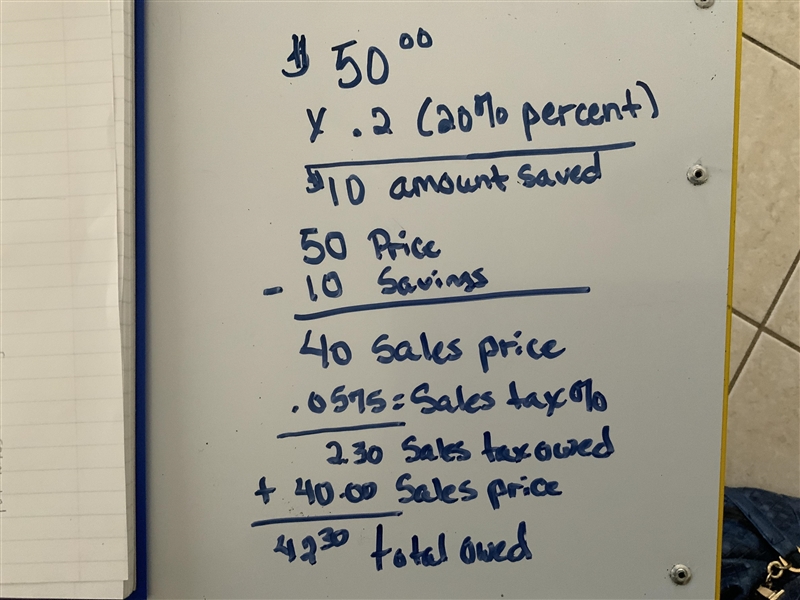 $ 50 00
x .2 (20% percent)
$10 amount saved
50 Price
- 10 Savings
40 Sales price
.0575 = Sales tax %
2.30 Sales tax owed
+ 40.00 Sales price
42 30 total owed